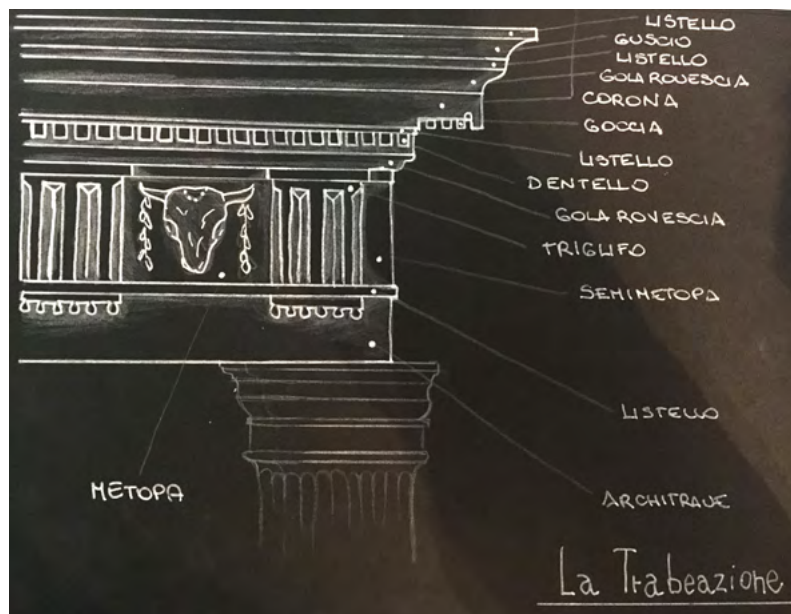 LISTELLO
GUSCIO
LISTELLO
GOLA ROVESCIA
CORONA
GOCCIA
LISTELLO
DENTELLO
GOLA ROVESCIA
TRIGLIFO
SEMIMETOPA
LISTELLO
METOPA
ARCHITRAVE
La Trabeazione